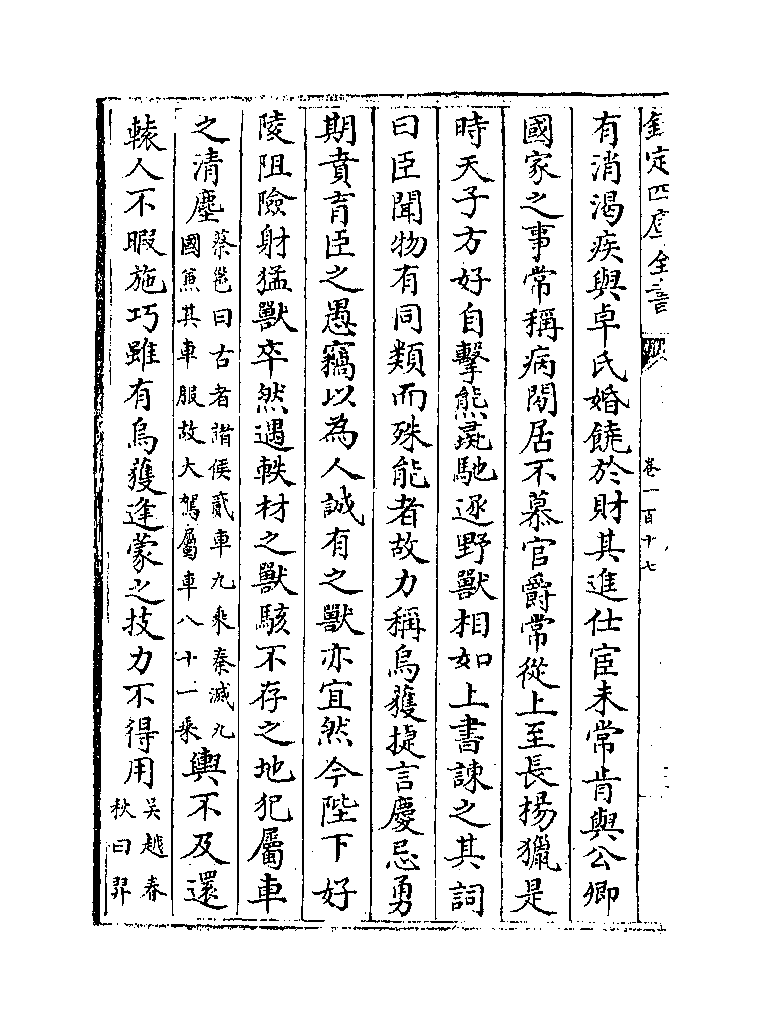 欽定四庫全書
卷一百十七
有消渴疾與卓氏婚饒於財其進仕宦未常肯與公卿
國家之事常稱病閒居不慕官爵常從上至長揚獵是
時天子方好自擊熊彘馳逐野獸相如上書諫之其詞
曰臣聞物有同類而殊能者故力稱烏獲捷言慶忌勇
期賁育臣之愚竊以為人誠有之獸亦宜然今陛下好
陵阻險射猛獸卒然遇軼材之獸駭不存之地犯屬車
之清塵蔡邕曰古者諸侯貳車九乘秦滅九國兼其車服故大駕屬車八十一乘輿不及還
轅人不暇施巧雖有烏獲逢蒙之技力不得用吳越春秋曰羿